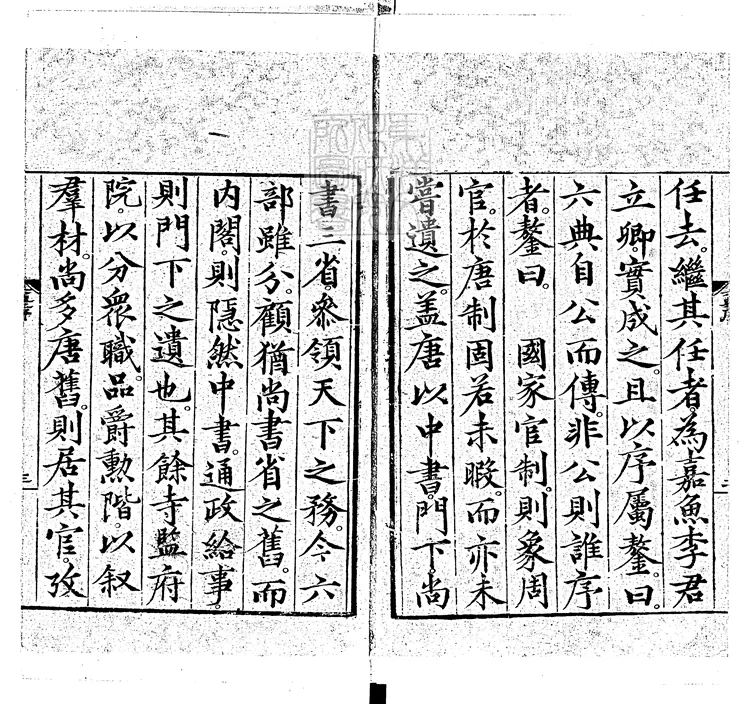 任去。繼其任者。為嘉魚李君
立卿。實成之。且以序屬鏊。曰。
六典自公而傳。非公則誰序
者。鏊曰。　國家官制。則象周
官。於唐制固若未暇。而亦未
嘗遺之。盖唐以中書。門下。尚
書三省。叅領天下之務。今六
部雖分。顧猶尚書省之舊。而
内閣。則隱然中書。通政給事。
則門下之遺也。其餘寺監府
院。以分衆職。品爵勲階。以叙
羣材。尚多唐舊。則居其官。攷